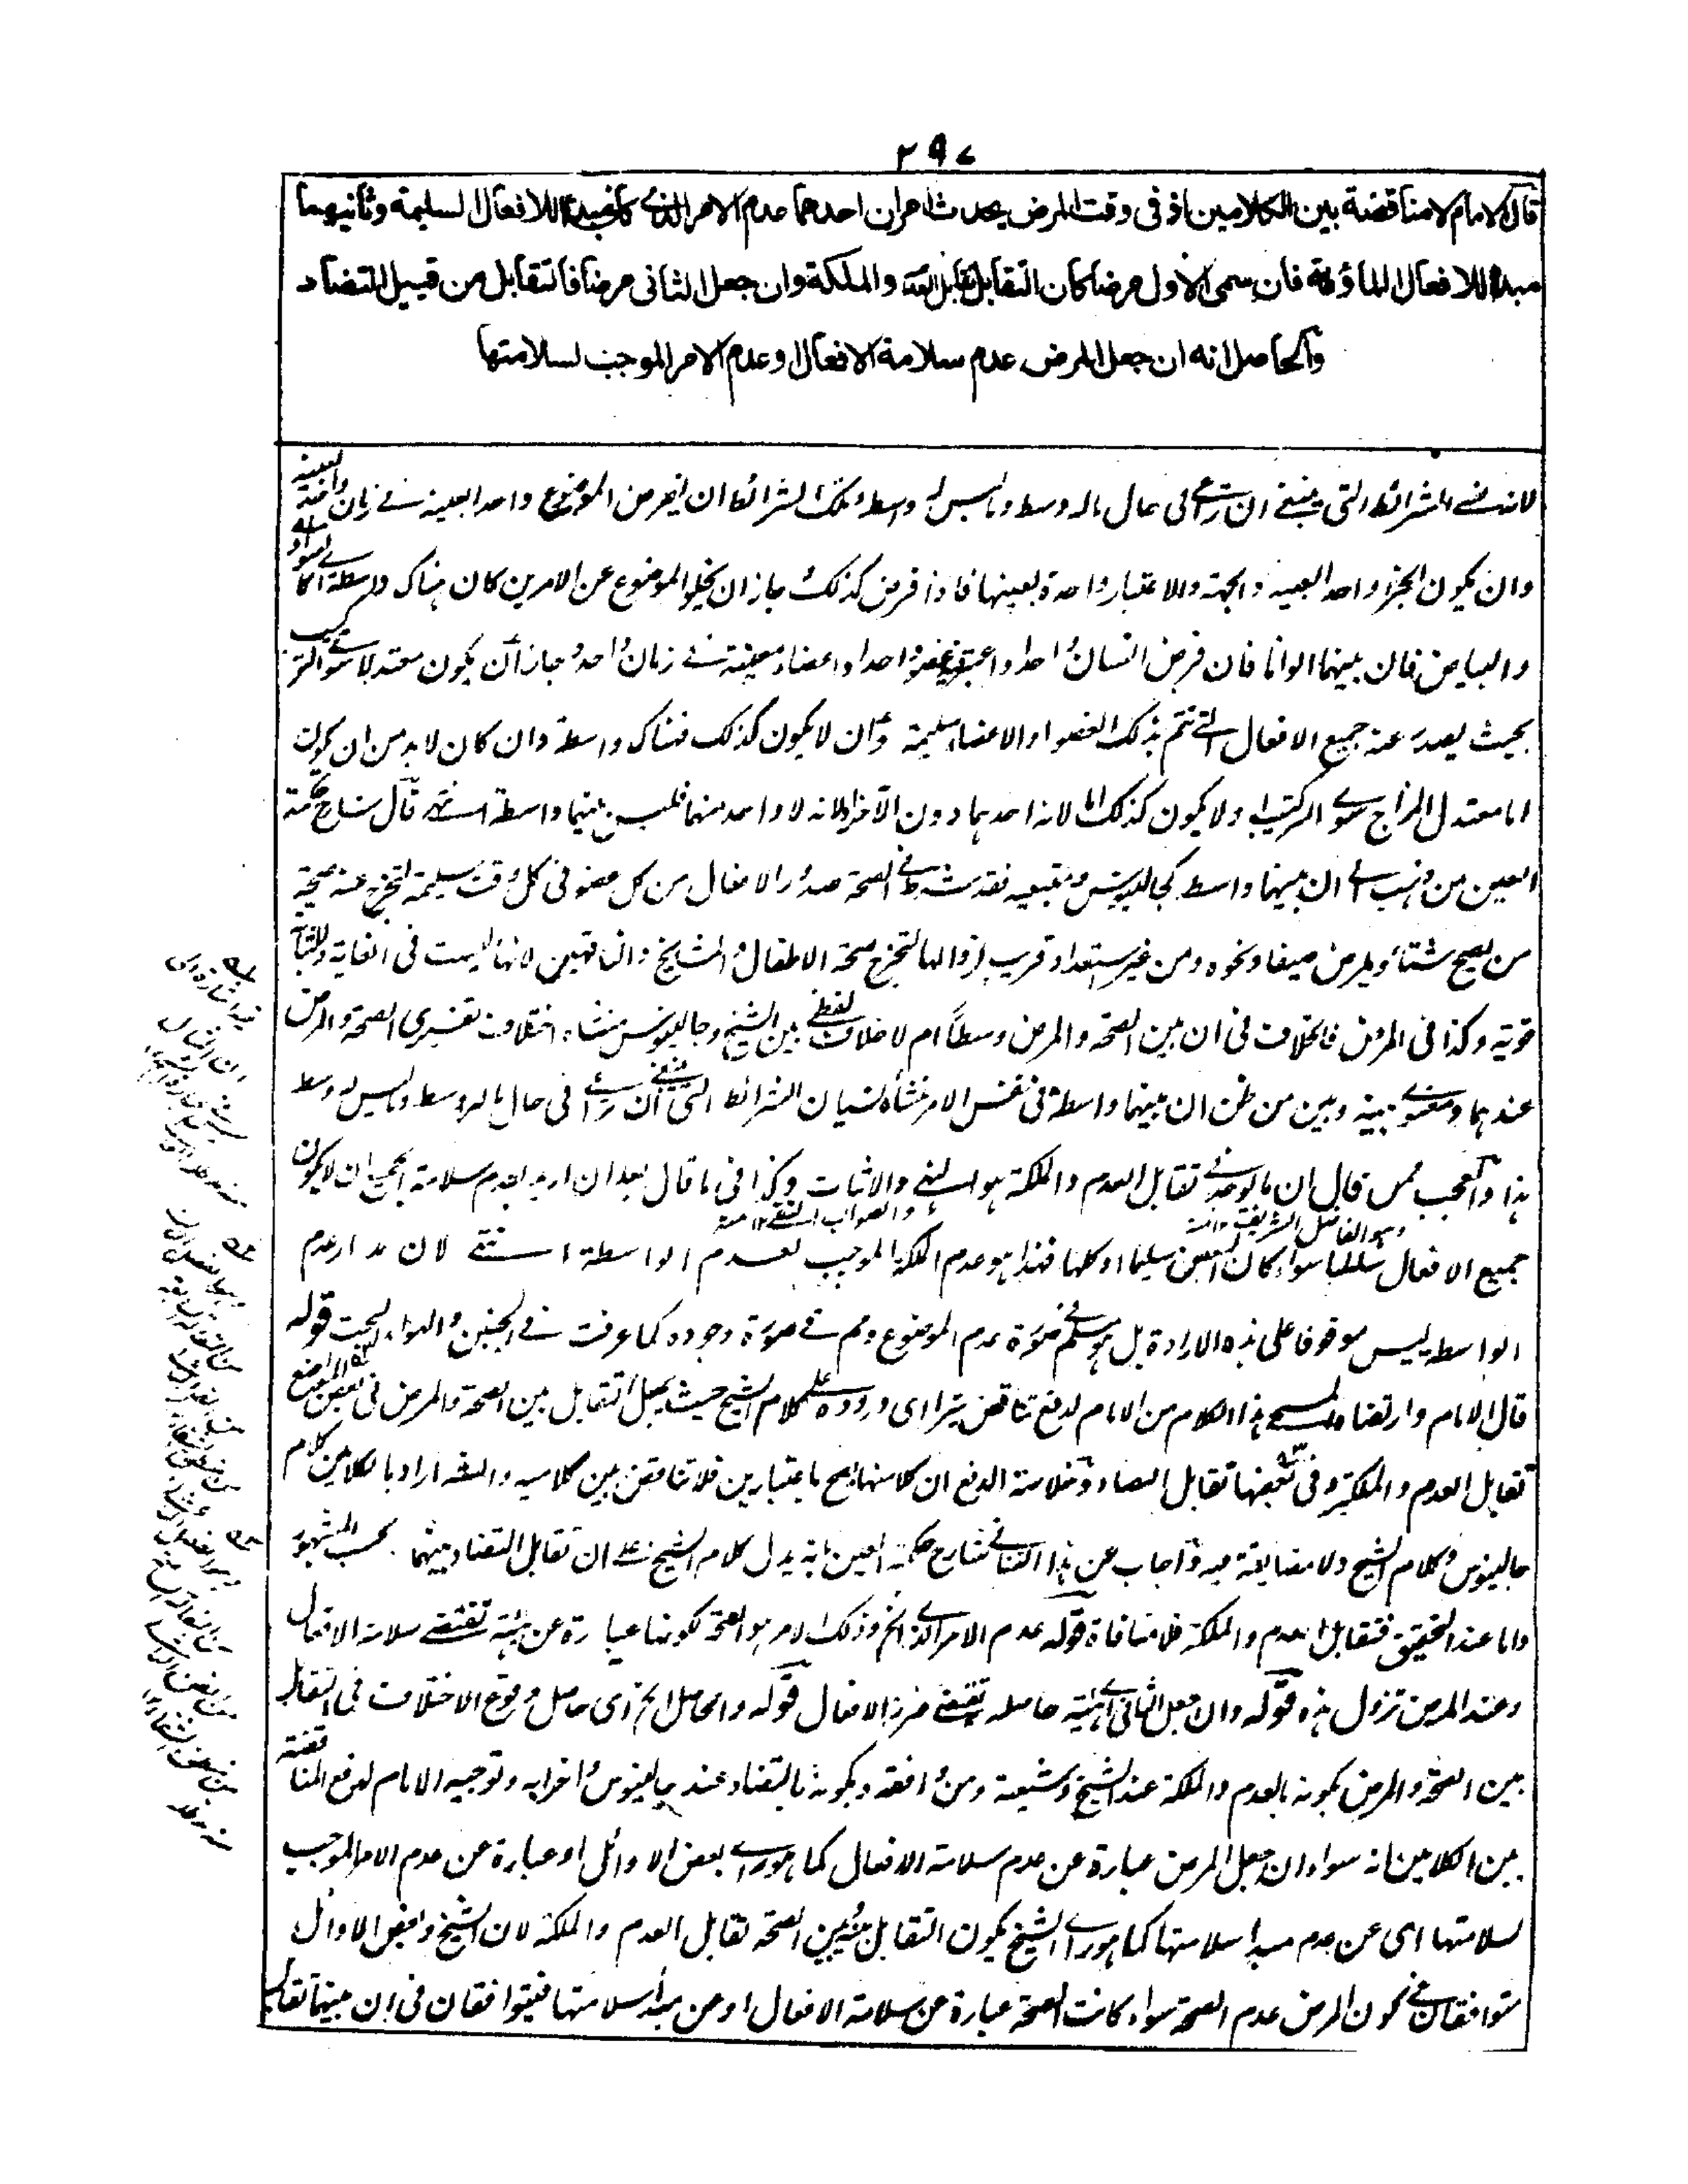 ٢٩٧
قال الامام لا مناقضة بين الكلامين اذ فى وقت المرض يحدث امران احدهما عدم الامر الذى كان مبدءا للافعال السليمة وثانيهما
مبدءا للافعال الماؤفة فان سمى الاول مرضا كان التقابل تقابل العدم والملكة وان جعل الثانى مرضا فالتقابل من قبيل التضاد
والحاصل انه ان جعل المرض عدم سلامة الافعال او عدم الامر الموجب لسلامتها
لانه نسى الشرائط التى ينبغى ان تراعى فى حال ماله وسط وما ليس له وسط وتلك الشرائط ان يفرض الموضوع واحدا بعينه فى زمان واحد بعينه
وان يكون الجزء واحدا بعينه والجهة والاعتبار واحدة بعينها فاذا فرض كذلك جاز ان يخلو الموضوع عن الامرين كان هناك واسطة كالسواد
والبياض فان بينهما الوانا فان فرض انسان واحد واعتبر عضو واحد او اعضاء معينة فى زمان واحد وجاز ان يكون معتدلا سوى التركيب
بحيث يصدر عنه جميع الافعال التى تتم بذلك العضو او الاعضاء سليمة وان لا يكون كذلك فهناك واسطة وان كان لا بد من ان يكون
اما معتدل المزاج سوى التركيب او لا يكون كذلك اما لانه احدهما دون الآخر او لانه لا واحد منهما فليس بينهما واسطة انتهى قال شارح حكمة
العين من ذهب الى ان بينهما واسطة كجالينوس ومتبعيه فقد شرط فى الصحة صدور الافعال من كل عضو فى كل وقت سليمة لتخرج عنه صحة
من يصح شتاء ويمرض صيفا ونحوه ومن غير استعداد قريب لزوالها لتخرج صحة الاطفال والمشايخ والناقهين لانها ليست فى الغاية ولا ثابتة
قوية وكذا فى المرض فالخلاف فى ان بين الصحة والمرض وسطا ام لا خلاف لفظى بين الشيخ وجالينوس منشاه اختلاف تفسيرى الصحة والمرض
عندهما ومعنوى بينه وبين من ظن ان بينهما واسطة فى نفس الامر منشأه نسيان الشرائط التى ينبغى ان تراعى فى حال ماله وسط وما ليس له وسط
هذا والعجب ممن قال ان ما يوجد فى تقابل العدم والملكة هو النفى والاثبات وكذا فى ما قال بعد ان اريد بعدم سلامة الجميع ان لا يكون
وهو الفاضل الشريف ١٢ منه
والصواب انتفى ١٢ منه
جميع الافعال سليما سواء كان البعض سليما او كلها فهذا هو عدم الملكة الموجب لعدم الواسطة انتهى لان مدار عدم
الواسطة ليس موقوفا على هذه الارادة بل هو مسلم فى صورة عدم الموضوع ومم فى صورة وجوده كما عرفت فى الجنين والهواء البحت قوله
قال الامام وارتضاه المسيحى هذا الكلام من الامام لدفع تناقض يتراءى وروده على كلام الشيخ حيث يجعل التقابل بين الصحة والمرض فى بعض المواضع
تقابل العدم والملكة وفى بعضها تقابل التضاد وخلاصة الدفع ان كلا منها صح باعتبارين فلا تناقض بين كلاميه والشه اراد بالكلامين كلام
جالينوس وكلام الشيخ ولا مضايقة فيه واجاب عن هذا التنافى شارح حكمة العين بانه يدل كلام الشيخ على ان تقابل التضاد بينهما بحسب المشهور
واما عند التحقيق فتقابل العدم والملكة فلا منافاة قوله عدم الامر الذى الخ وذلك الامر هو الصحة لكونها عبارة عن هيئة تقتضى سلامة الافعال
وعند المرض تزول هذه قوله وان جعل الثانى اى هيئة حاصلة تقتضى ضرر الافعال قوله والحاصل الخ اى حاصل وقوع الاختلاف فى التقابل
بين الصحة والمرض بكونه بالعدم والملكة عند الشيخ وشيعته ومن وافقه وبكونه بالتضاد عند جالينوس واحزابه وتوجيه الامام لدفع المناقضة
بين الكلامين انه سواء ان جعل المرض عبارة عن عدم سلامة الافعال كما هو رأى بعض الاوائل او عبارة عن عدم الامر الموجب
لسلامتها اى عن عدم مبدأ سلامتها كما هو رأى الشيخ يكون التقابل بينه وبين الصحة تقابل العدم والملكة لان الشيخ وبعض الاوائل
متوافقان فى كون المرض عدم الصحة سواء كانت الصحة عبارة عن سلامة الافعال او عن مبدأ سلامتها فيتوافقان فى ان بينهما تقابل